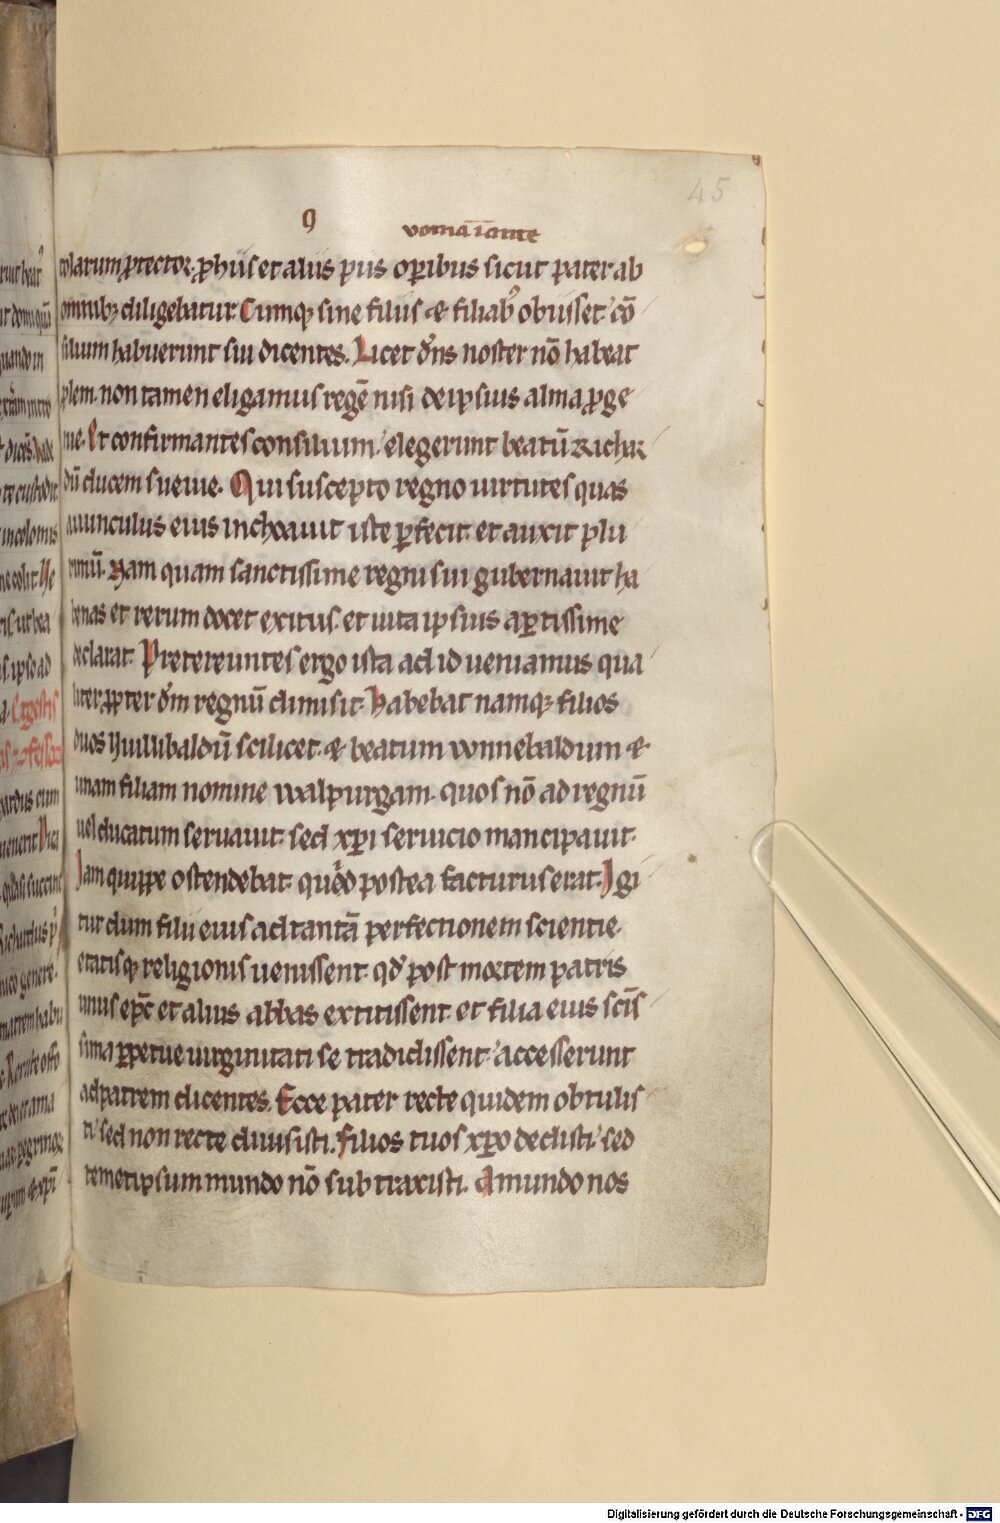 45
9
colarum ꝓtector. ꝓ hiis et aliis piis oꝑibus sicut pater ab
omnibꝫ diligebatur. Cumqꝫ sine filiis ⁊ filiabꝰ obiisset cō
silium habuerunt sui dicentes. Licet dn̄s noster nō habeat
plem. non tamen eligamus regē nisi de ipsius alma ꝓge
nie. Et confirmantes consilium elegerunt beatū Richar
dū ducem sueuie. Qui suscepto regno uirtutes quas
auunculus eius inchoauit iste ꝑfecit. et auxit plu
rimū. Nam quam sanctissime regni sui gubernauit ha
benas et rerum docet exitus. et uita ipsius aꝑtissime
declarat. Pretereuntes ergo ista ad id ueniamus qua
liter ꝓpter dm̄ regnū dimisit. Habebat namqꝫ filios
duos Wuillibaldū scilicet. ⁊ beatum wnnebaldum ⁊
unam filiam nomine walpurgam. quos nō ad regnū
uel ducatum seruauit. sed xp̄i seruicio mancipauit.
Jam quippe ostendebat quod postea facturus erat. Igi
tur dum filii eius ad tantā perfectionem scientie
etatisqꝫ religionis uenissent. qd̄ post mortem patris
unus ep̄c et alius abbas extitissent. et filia eius sc̄is
sima ꝑpetue uirginitati se tradidissent accesserunt
ad patrem dicentes. Ecce pater recte quidem obtulis
ti sed non recte diuisisti. Filios tuos xp̄o dedisti sed
temetipsum mundo nō subtraxisti. A mundo nos
Digitalisierung gefördert durch die Deutsche Forschungsgemeinschaft - DFG